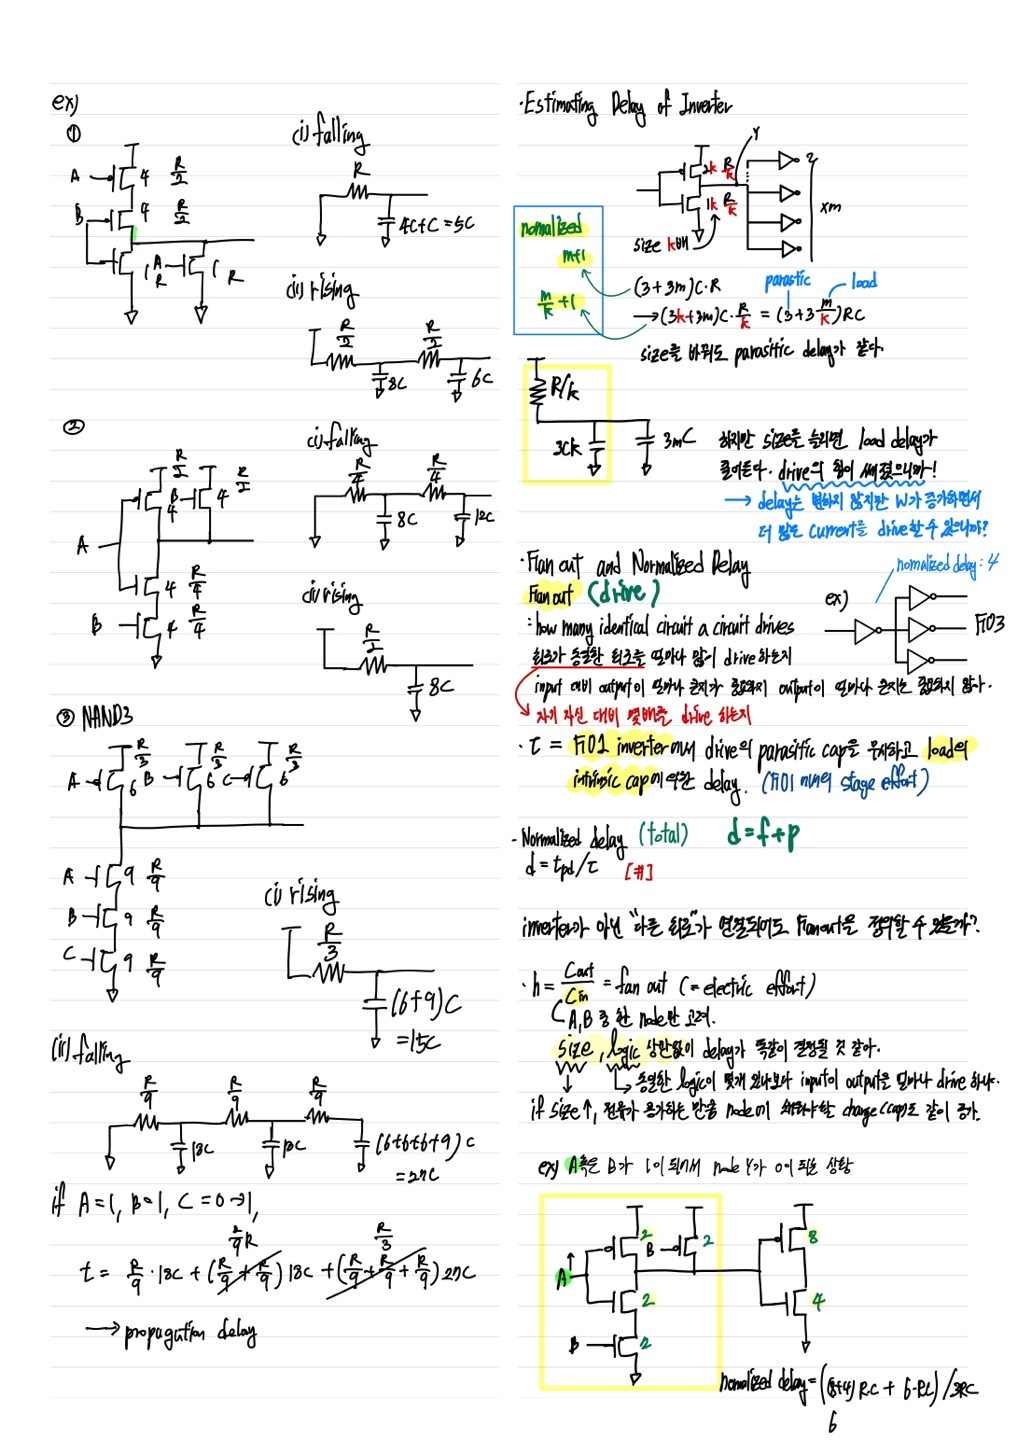 ex)
①
A 4 R/2
B 4 R/2
1 R A 1 R
(i) falling
R
4C+C=5C
(ii) rising
R/2 R/2
8C 6C
②
R/2 R/2
B 4
4
A
4 R/4
B 4 R/4
(i) falling
R/4 R/4
8C 12C
(ii) rising
R/2
8C
③ NAND3
R/3 R/3 R/3
A 6 B 6 C 6
A 9 R/9
B 9 R/9
C 9 R/9
(i) rising
R/3
(6+9)C
=15C
(ii) falling
R/9 R/9 R/9
18C 18C (6+6+6+9)C
=27C
if A=1, B=1, C=0→1,
2/9R R/3
t = R/9 · 18C + (R/9+R/9) 18C + (R/9+R/9+R/9) 27C
→ propagation delay
·Estimating Delay of Inverter
Y
2k R/k
1k R/k
xm
size k배
normalized
m+1
m/k +1
(3+3m)C·R
parastic load
→(3k+3m)C·R/k = (3+3 m/k)RC
size를 바꿔도 parasitic delay가 같다.
R/k
3Ck 3mC
하지만 size를 늘리면 load delay가
줄어든다. drive의 힘이 쎄졌으니까!
→ delay는 변하지 않지만 W가 증가하면서
더 많은 current를 drive할 수 있으니까?
·Fan out and Normalized Delay
normalized delay: 4
Fan out (drive)
ex)
FO3
: how many identical circuit a circuit drives
회로가 동일한 회로를 얼마나 많이 drive하는지
input 대비 output이 얼마나 큰지가 중요하지 output이 얼마나 큰지는 중요하지 않다.
→ 자기 자신 대비 몇배를 drive 하는지
· τ = FO1 inverter에서 drive의 parasitic cap을 무시하고 load의
intrinsic cap에 의한 delay. (FO1에서의 stage effort)
- Normalized delay (total) d=f+p
d=tpd/τ [#]
inverter가 아닌 "다른 회로"가 연결되어도 Fanout을 정의할 수 있을까?
· h = Cout/Cin = fan out (=electric effort)
A,B 중 한 node만 고려.
size, logic 상관없이 delay가 똑같이 결정될 것 같아.
→ 동일한 logic이 몇개 있나보다 input이 output을 얼마나 drive 하나.
if size↑, 전류가 증가하는 만큼 node에 채워야할 charge(cap)도 같이 증가.
ex) A혹은 B가 1이 되면서 node Y가 0이 되는 상황
2 B 2 8
A
2 4
B 2
normalized delay = ((8+4) RC + 6·RC) / 3RC
6